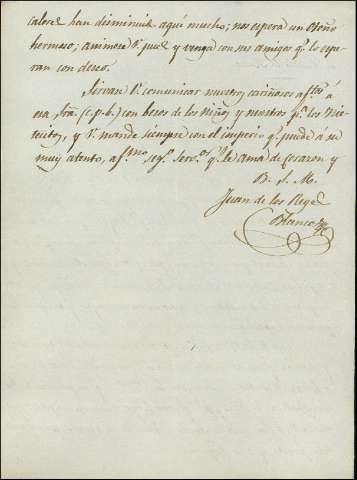 calores han disminuido aquí mucho; nos espera un otoño
hermoso; animese V. pues y venga con sus amigos q. lo espe-
ran con deseo.
Sirvan V. comunicar nuestros cariñosos af.tos á
esa Sra. (c. p. b.) con besos de los Niños y nuestros p.a los Nie-
tecitos, y V. mande siempre con el imperio q. puede á su
muy atento, af.mo seg.o Serv.or q. le ama de corazon y
B. S. M.
Juan de los Reyes
Blanco